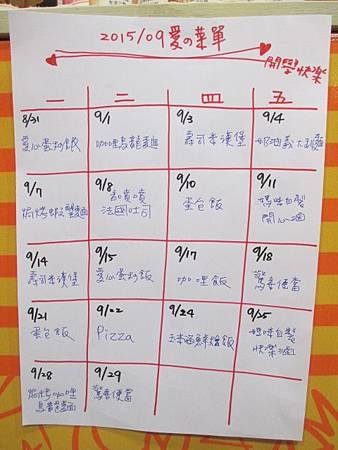 2015/09愛の菜單
開學快樂
一 二 四 五
8/31 9/1 9/3 9/4
愛心蛋炒飯 咖哩烏龍麵 壽司米漢堡 奶油義大利麵
9/7 9/8 9/10 9/11
焗烤蝦蟹麵 誤噴噴 蛋包飯 媽咪自製
法國吐司 開心
9/14 9/15 9/17 9/18
壽司米漢堡 愛心蛋炒飯 咖哩飯 驚喜便當
9/21 9/22 9/24 9/25
蛋包飯 Pizza 玉米鮭魚燉飯 媽咪自製
快樂
9/28 9/29
焗烤咖哩 驚喜便當
烏龍麵